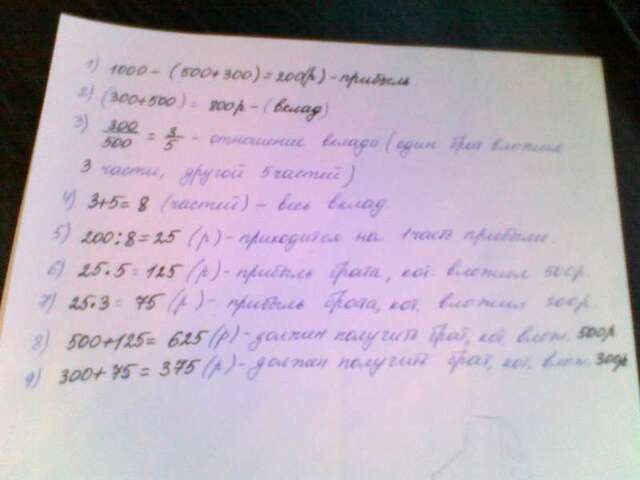 1) 1000 - (500+300) = 200(р) - прибыль
2) (300+500) = 800р - (вклад)
3) 300/500 = 3/5 - отношение вклада (один брат вложил
3 части, другой 5 частей)
4) 3+5=8 (частей) - весь вклад.
5) 200:8=25 (р) - приходится на 1 часть прибыли.
6) 25·5=125 (р) - прибыль брата, кот. вложил 500р.
7) 25·3= 75 (р) - прибыль брата, кот. вложил 300р.
8) 500+125= 625 (р) - должен получить брат, кот. влож. 500р
9) 300+75 = 375 (р) - должен получить брат, кот. влож. 300р